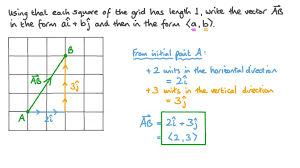 Using that each square of the grid has length 1, write the vector AB
in the form aî + bĵ and then in the form ⟨a, b⟩.
From initial point A:
+2 units in the horizontal direction
= 2î
+3 units in the vertical direction
= 3ĵ
AB = 2î + 3ĵ
= ⟨2, 3⟩
B
AB
3ĵ
A
2î